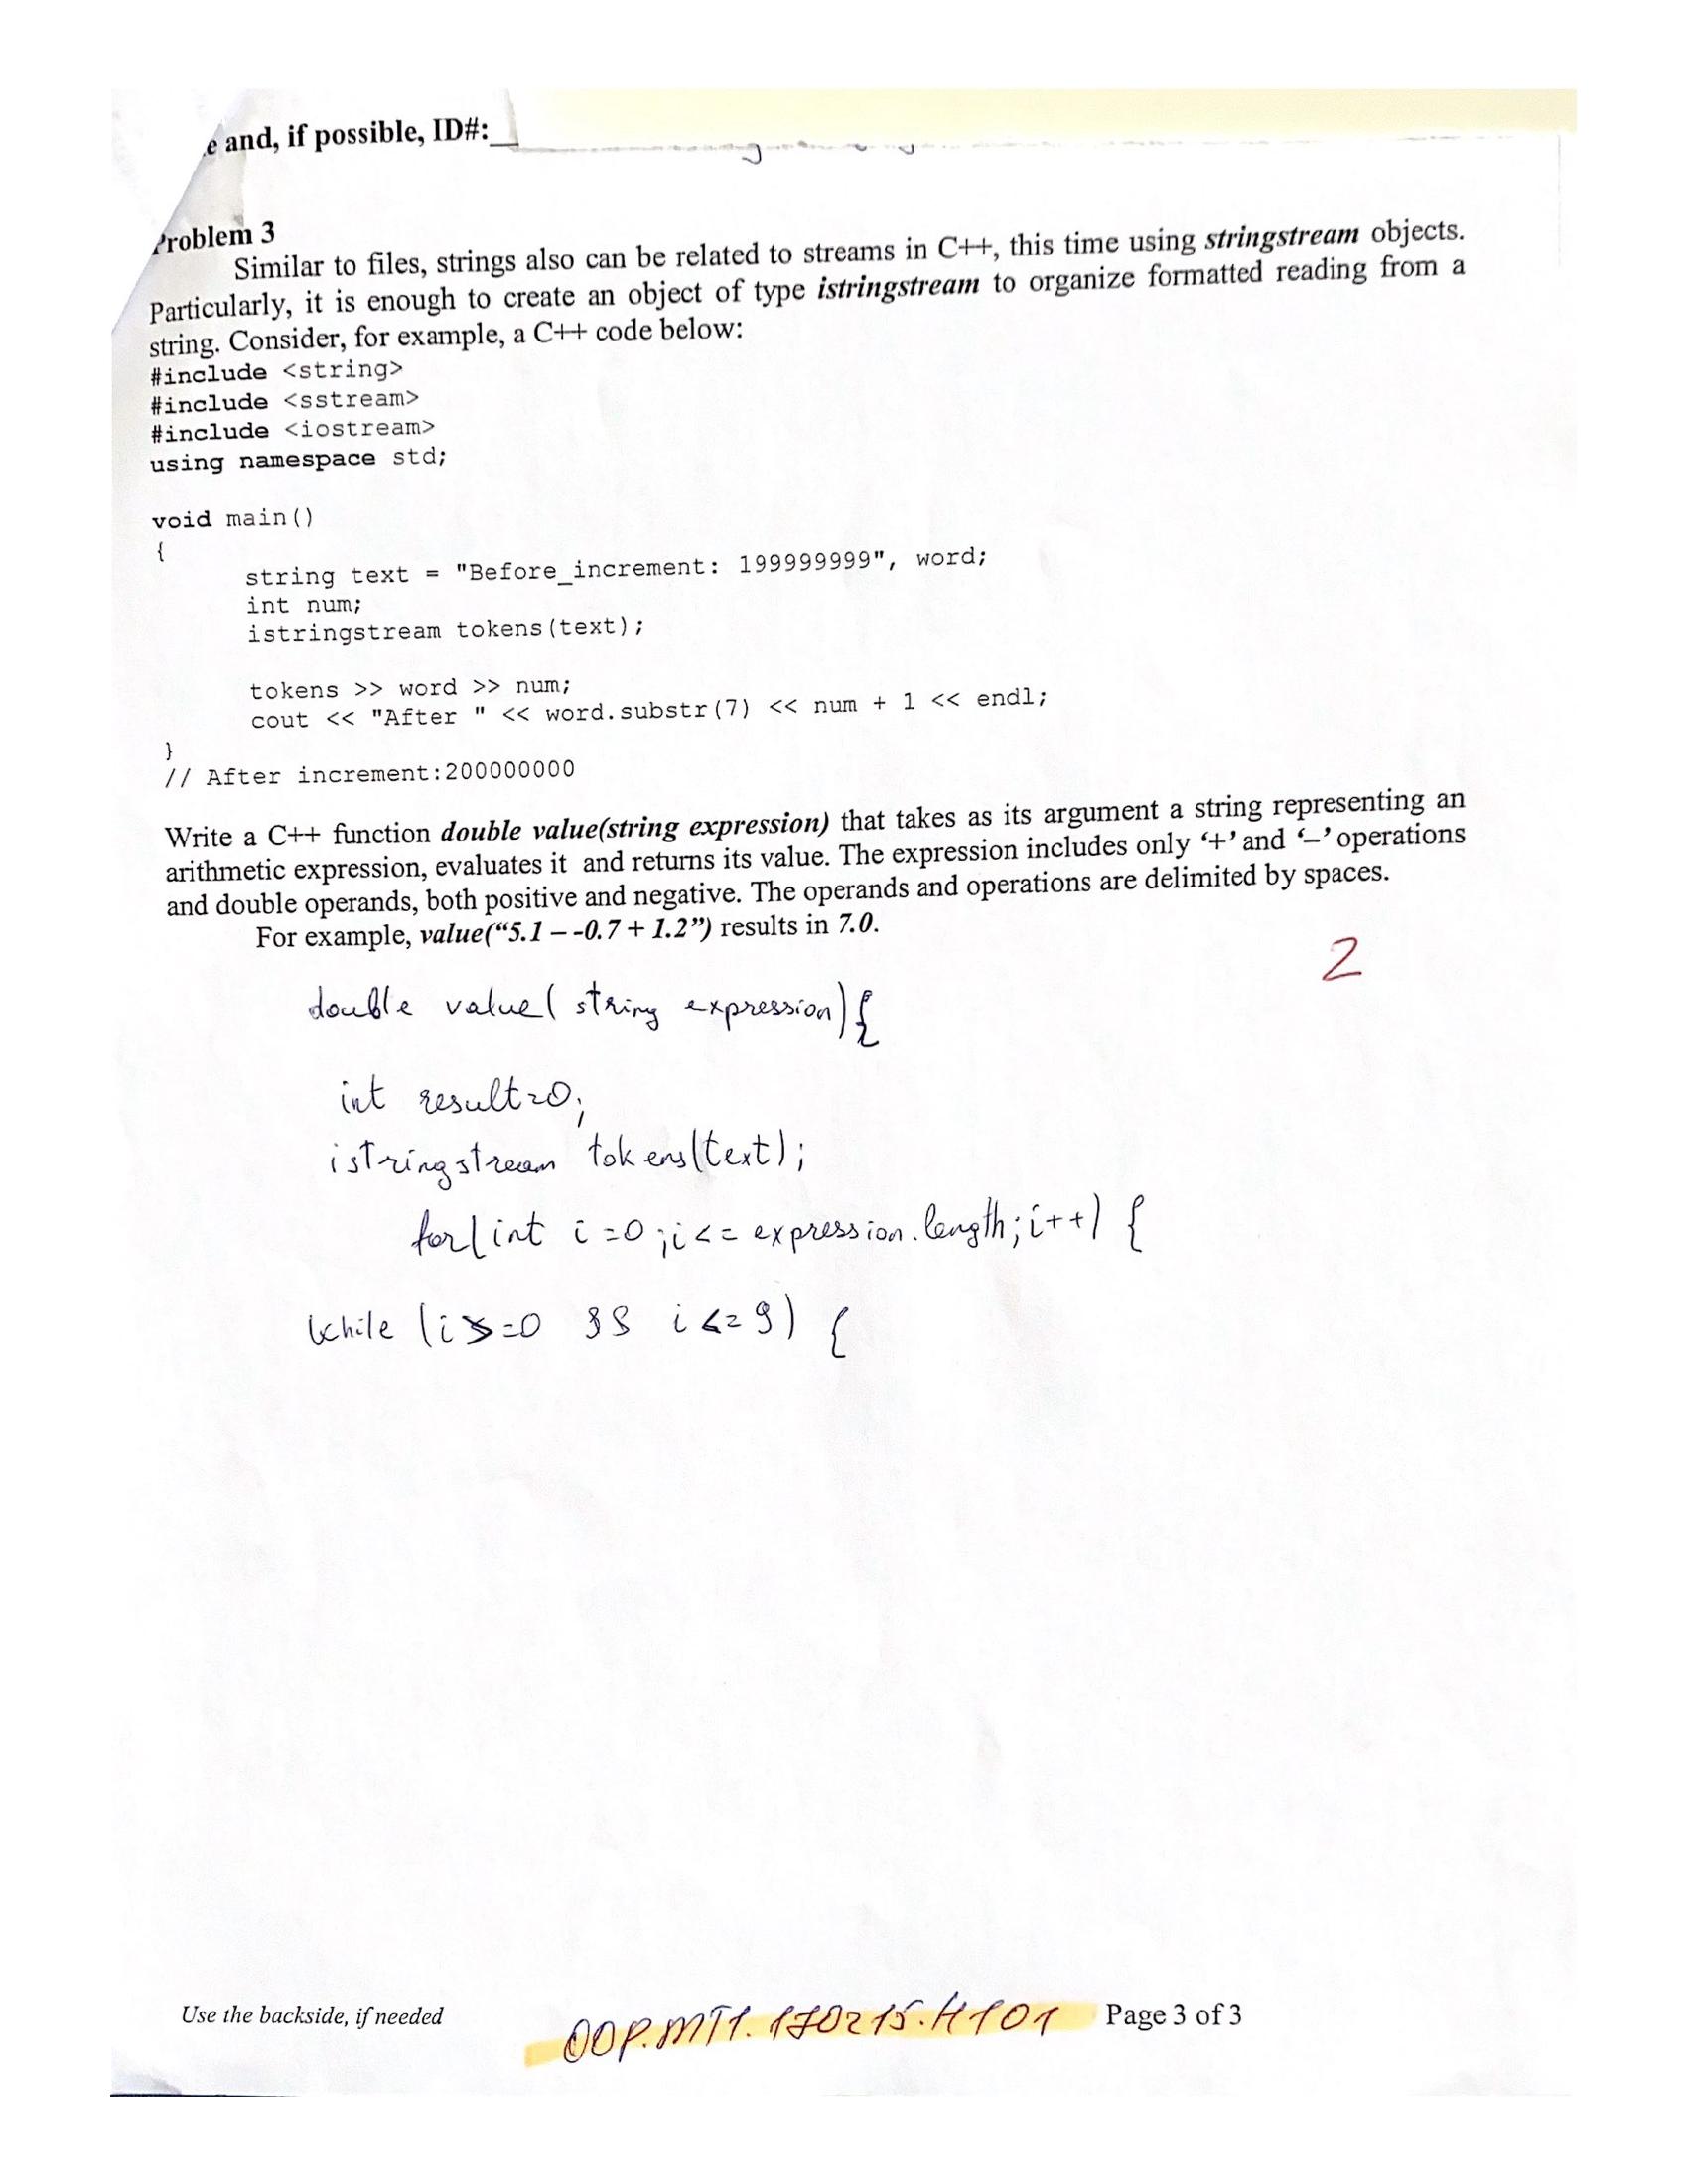 e and, if possible, ID#:
Problem 3
Similar to files, strings also can be related to streams in C++, this time using stringstream objects.
Particularly, it is enough to create an object of type istringstream to organize formatted reading from a
string. Consider, for example, a C++ code below:
#include <string>
#include <sstream>
#include <iostream>
using namespace std;
void main()
{
string text = "Before_increment: 199999999", word;
int num;
istringstream tokens(text);
tokens >> word >> num;
cout << "After " << word.substr(7) << num + 1 << endl;
}
// After increment:200000000
Write a C++ function double value(string expression) that takes as its argument a string representing an
arithmetic expression, evaluates it and returns its value. The expression includes only ‘+’ and ‘–’ operations
and double operands, both positive and negative. The operands and operations are delimited by spaces.
For example, value(“5.1 – -0.7 + 1.2”) results in 7.0.
2
double value( string expression) {
int result=0;
istringstream tokens(text);
for(int i=0;i<= expression.length;i++) {
while (i>=0 && i<=9) {
Use the backside, if needed
OOP.MT1.170215.H101
Page 3 of 3